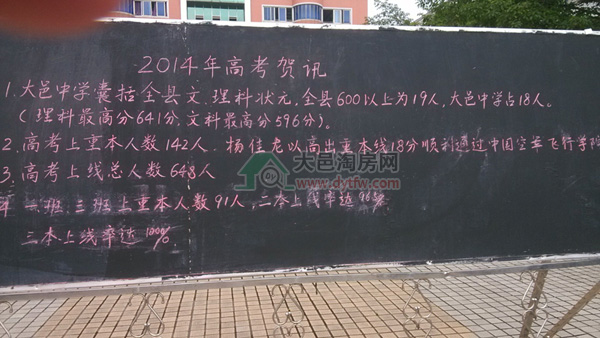 2014年高考贺讯
1.大邑中学囊括全县文、理科状元,全县600以上为19人,大邑中学占18人。
(理科最高分641分、文科最高分596分)。
2.高考上重本人数142人.杨佳龙以高出重本线18分顺利通过中国空军飞行学院
3.高考上线总人数648人
4.二班、三班上重本人数91人,二本上线率达96%.
三本上线率达100%.
大邑淘房网
www.dytfw.com